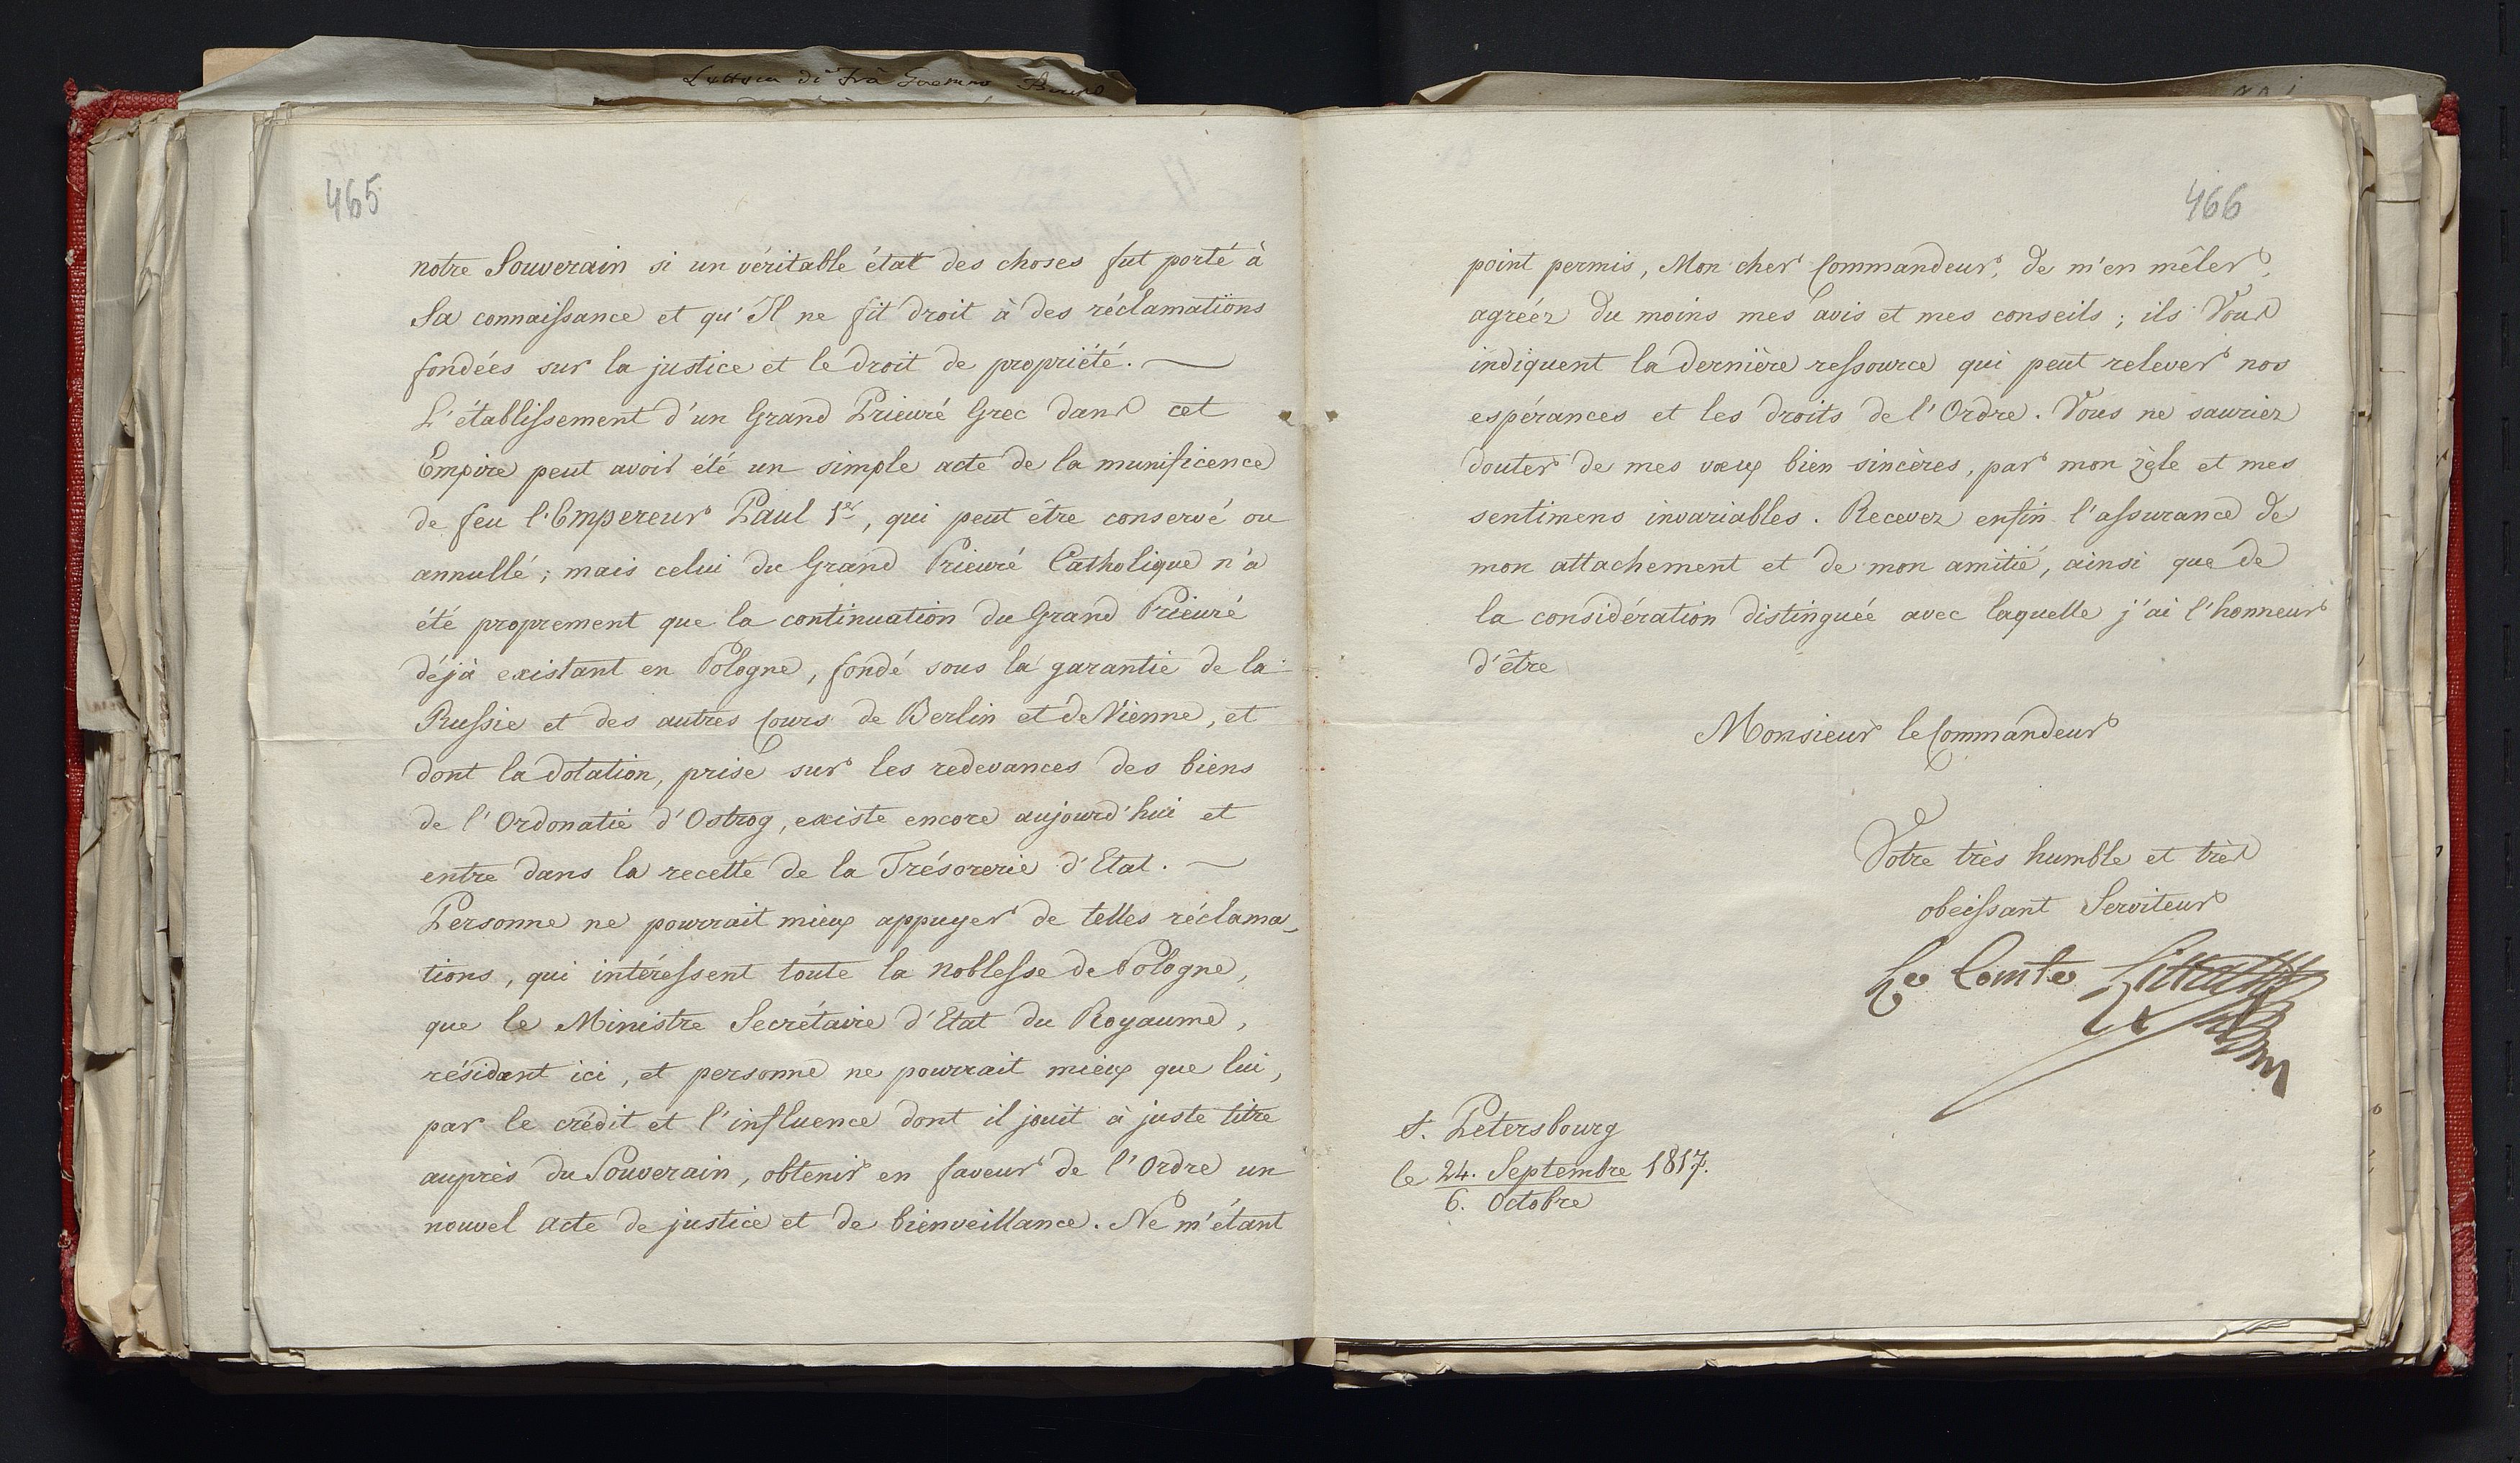 Lettera di Frà
465
notre Souverain si un véritable état des choses fut porté à
Sa connaissance et qu'Il ne fit droit à des réclamations
fondées sur la justice et le droit de propriété. —
L'établissement d'un Grand Prieuré Grec dans cet
Empire peut avoir été un simple acte de la munificence
de feu l'Empereur Paul 1er, qui peut être conservé ou
annullé; mais celui du Grand Prieuré Catholique n'a
été proprement que la continuation du Grand Prieuré
déjà existant en Pologne, fondé sous la garantie de la
Russie et des autres Cours de Berlin et de Vienne, et
dont la dotation, prise sur les redevances des biens
de l'Ordonatie d'Ostrog, existe encore aujourd'hui et
entre dans la recette de la Trésorerie d'Etat. —
Personne ne pourrait mieux appuyer de telles réclama-
tions, qui intéressent toute la noblesse de Pologne,
que le Ministre Secrétaire d'Etat du Royaume,
résidant ici, et personne ne pourrait mieux que lui,
par le crédit et l'influence dont il jouit à juste titre
auprès du Souverain, obtenir en faveur de l'Ordre un
nouvel acte de justice et de bienveillance. Ne m'étant
466
point permis, Mon cher Commandeur, de m'en mêler,
agréez du moins mes avis et mes conseils; ils Vous
indiquent la dernière ressource qui peut relever nos
espérances et les droits de l'Ordre. Vous ne sauriez
douter de mes vœux bien sincères, par mon zèle et mes
sentimens invariables. Recevez enfin l'assurance de
mon attachement et de mon amitié, ainsi que de
la considération distinguée avec laquelle j'ai l'honneur
d'être
Monsieur le Commandeur
Votre très humble et très
obeissant Serviteur
Le Comte Litta
St. Petersbourg
le 24. Septembre 1817.
6. Octobre